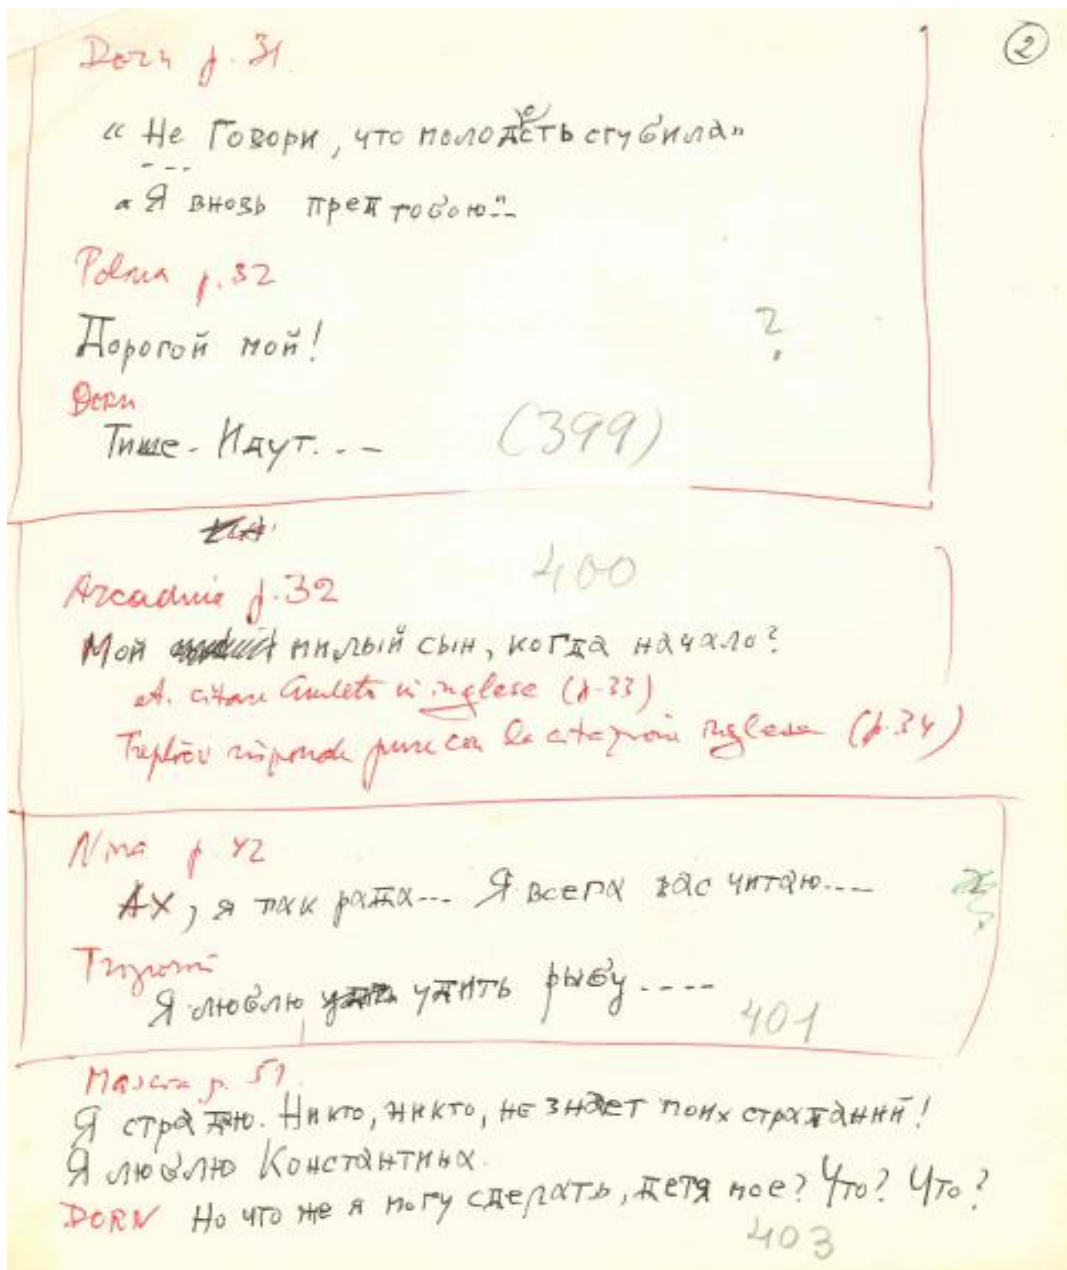 2
Dorn p. 31
" Не Говори, что молодость сгубила"
---
" Я вновь пред тобою..."
Polina p. 32
Дорогой мой!
?
Dorn
Тише - Идут... -
(399)
400
Arcadina p. 32
Мой милый сын, когда начало?
A. citare Amleto in inglese (p. 33)
Treplëv risponde pure con la citazione inglese (p. 34)
Nina p. 42
Ах, я так рада... Я всегда вас читаю....
Trigorin
Я люблю удить рыбу ----
401
Mascia p. 51
Я страдаю. Никто, никто, не знает моих страданий!
Я люблю Константина.
DORN Но что же я могу сделать, детя мое? Что? Что?
403